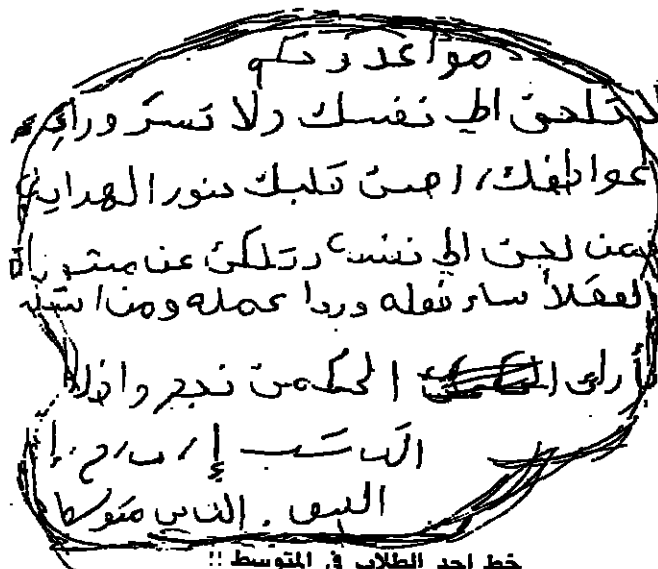 مواعد وحكم
لا تلجئ الى نفسك ولا تسر وراء
عواطفك، احسن قلبك بنور الهداية
فمن لجئ الى نفسه وتلكئ عن مشورة
العقلاً ساء فعله وردا عمله ومن استد
بأراى الحكمن نجح واذلا
الكاتب إ، ب، ح، إ
الصف. الثاني متوسط
خط احد الطلاب في المتوسط !!